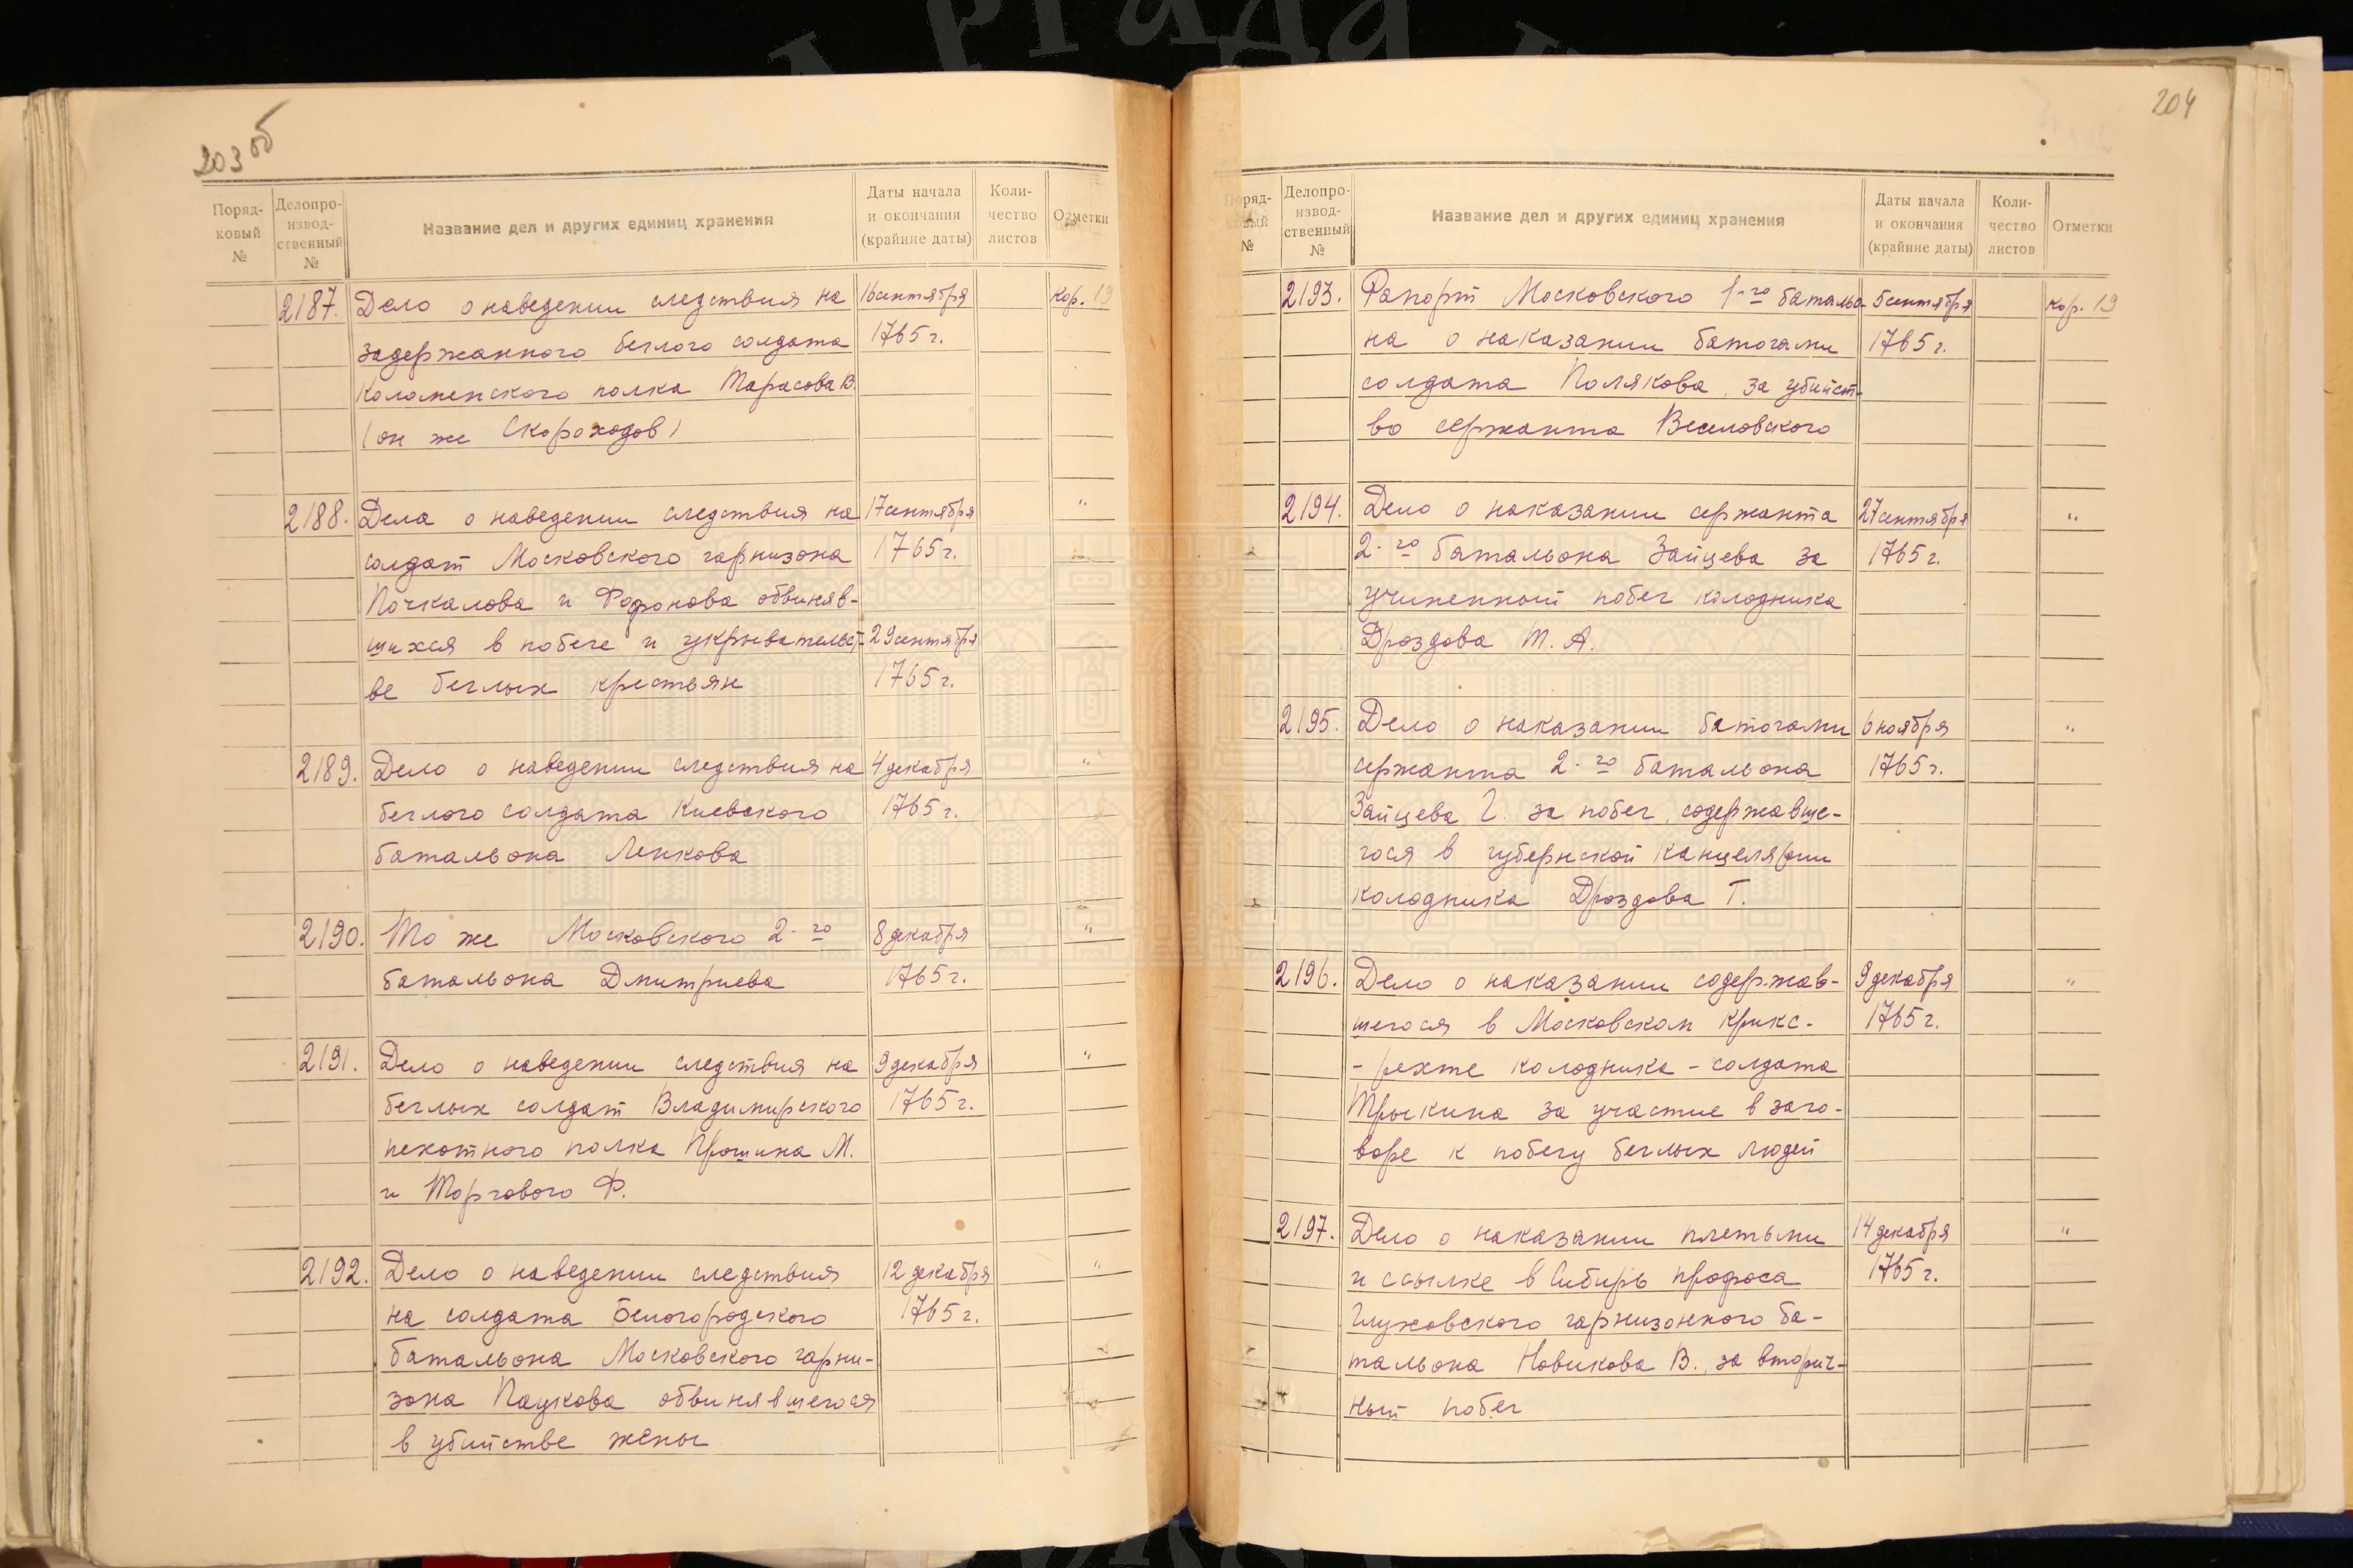 203 об
Поряд-
ковый
№
Делопро-
извод-
ственный
№
Название дел и других единиц хранения
Даты начала
и окончания
(крайние даты)
Коли-
чество
листов
Отметки
2187. Дело о наведении следствия на 16 сентября кор. 19
задержанного беглого солдата 1765 г.
Коломенского полка Тарасова В.
(он же Скороходов)
2188. Дела о наведении следствия на 17 сентября "
солдат Московского гарнизона 1765 г.
Почкалова и Фофонова обвиняв-
шихся в побеге и укрывательст- 29 сентября
ве беглых крестьян 1765 г.
2189. Дело о наведении следствия на 4 декабря "
беглого солдата Киевского 1765 г.
батальона Ленкова
2190. То же Московского 2-го 8 декабря "
батальона Дмитриева 1765 г.
2191. Дело о наведении следствия на 9 декабря "
беглых солдат Владимирского 1765 г.
пехотного полка Прошина М.
и Торгового Ф.
2192. Дело о наведении следствия 12 декабря "
на солдата Белогородского 1765 г.
батальона Московского гарни-
зона Паукова обвинявшегося
в убийстве жены
204
Делопро-
извод-
ственный
№
Название дел и других единиц хранения
Даты начала
и окончания
(крайние даты)
Коли-
чество
листов
Отметки
2193. Рапорт Московского 1-го батальо- 5 сентября кор. 19
на о наказании батогами 1765 г.
солдата Полякова, за убийст-
во сержанта Веселовского
2194. Дело о наказании сержанта 27 сентября "
2-го батальона Зайцева за 1765 г.
учиненный побег колодника
Дроздова Т. А.
2195. Дело о наказании батогами 6 ноября "
сержанта 2-го батальона 1765 г.
Зайцева Г. за побег, содержавше-
гося в губернской канцелярии
колодника Дроздова Т.
2196. Дело о наказании содержав- 9 декабря "
шегося в Московском крикс- 1765 г.
- рехте колодника - солдата
Трыкина за участие в заго-
воре к побегу беглых людей
2197. Дело о наказании плетьми 14 декабря "
и ссылке в Сибирь профоса 1765 г.
Глуховского гарнизонного ба-
тальона Новикова В., за вторич-
ный побег